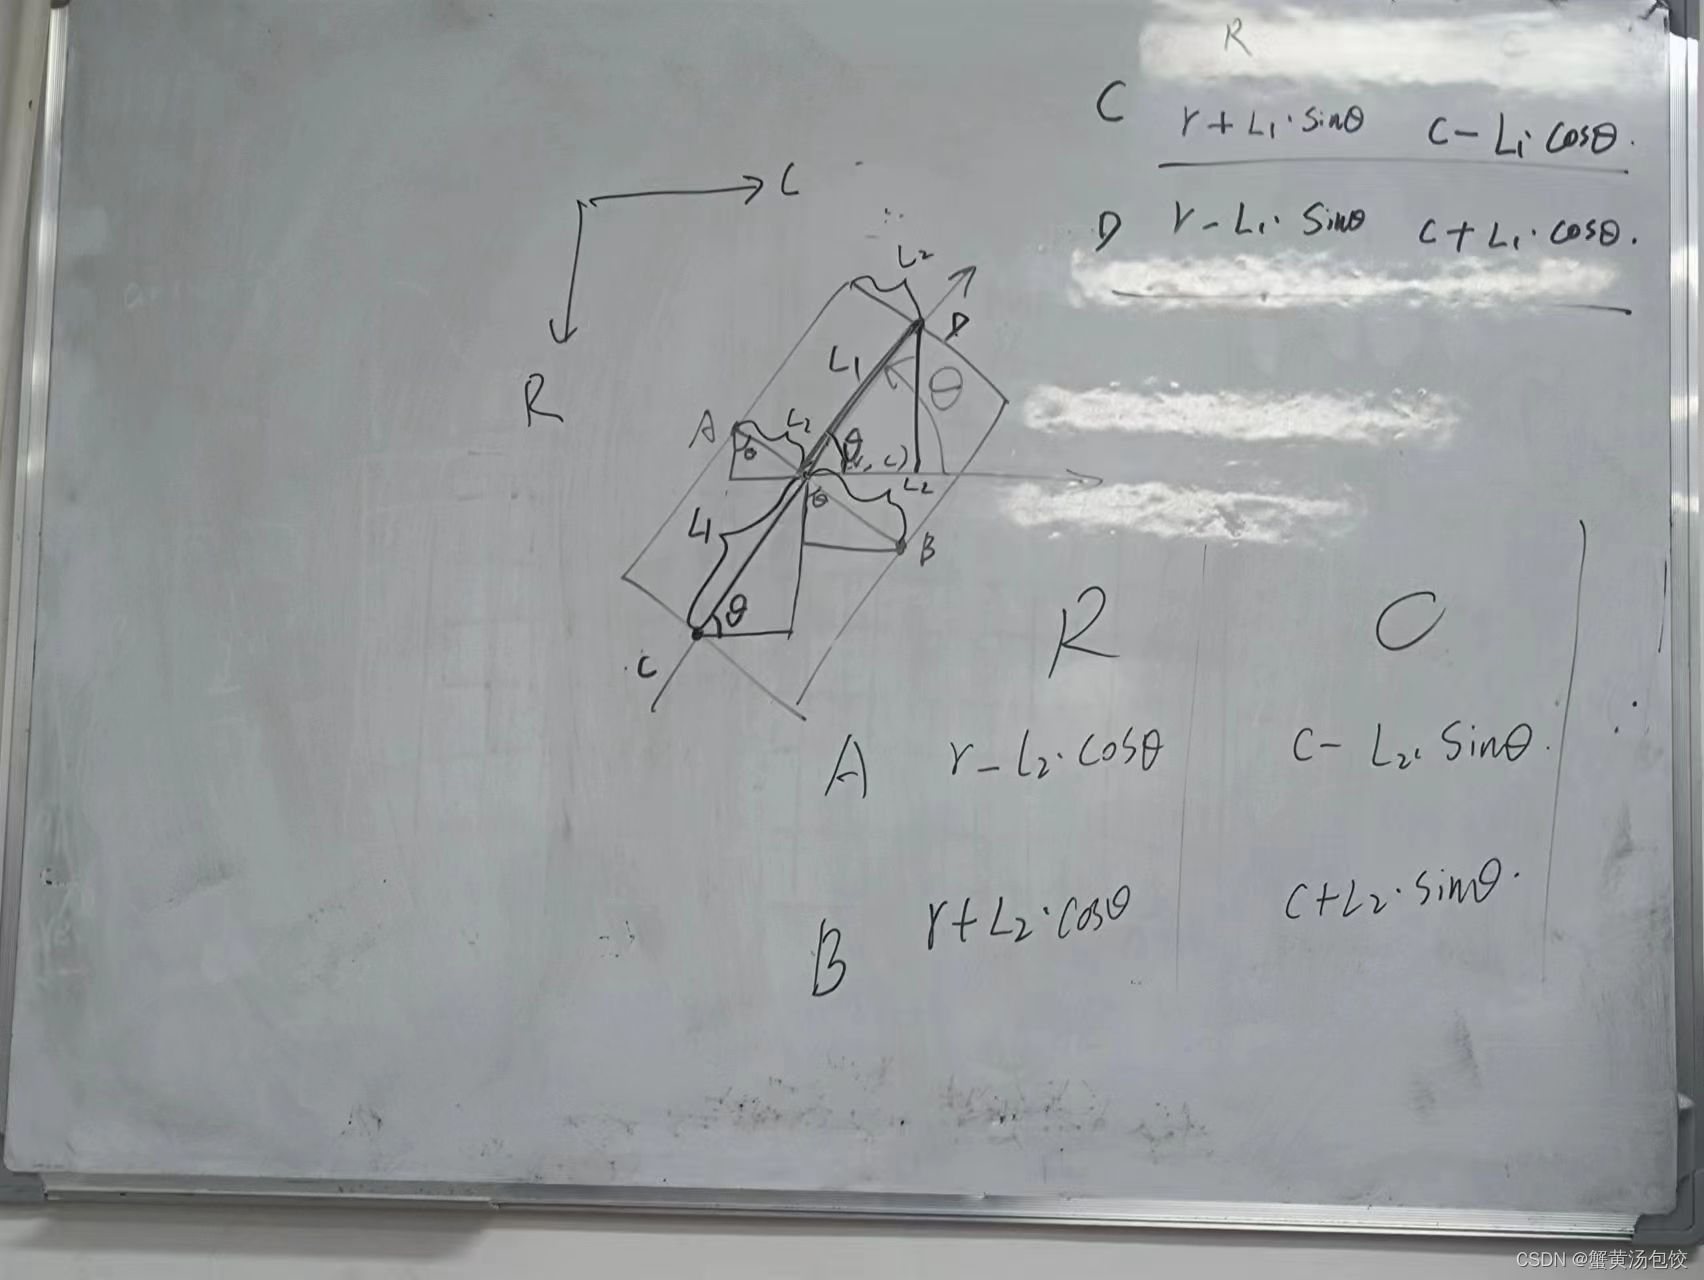 R
C r+L₁·sinθ C-L₁·cosθ.
D r-L₁·sinθ C+L₁·cosθ.
C
R
L₂
D
L₁
θ
A
L₂
θ
θ
(r, c)
L₂
θ
L1
B
θ
C
R C
A r-L₂·cosθ C-L₂·sinθ.
B r+L₂·cosθ C+L₂·sinθ.
CSDN @蟹黄汤包饺